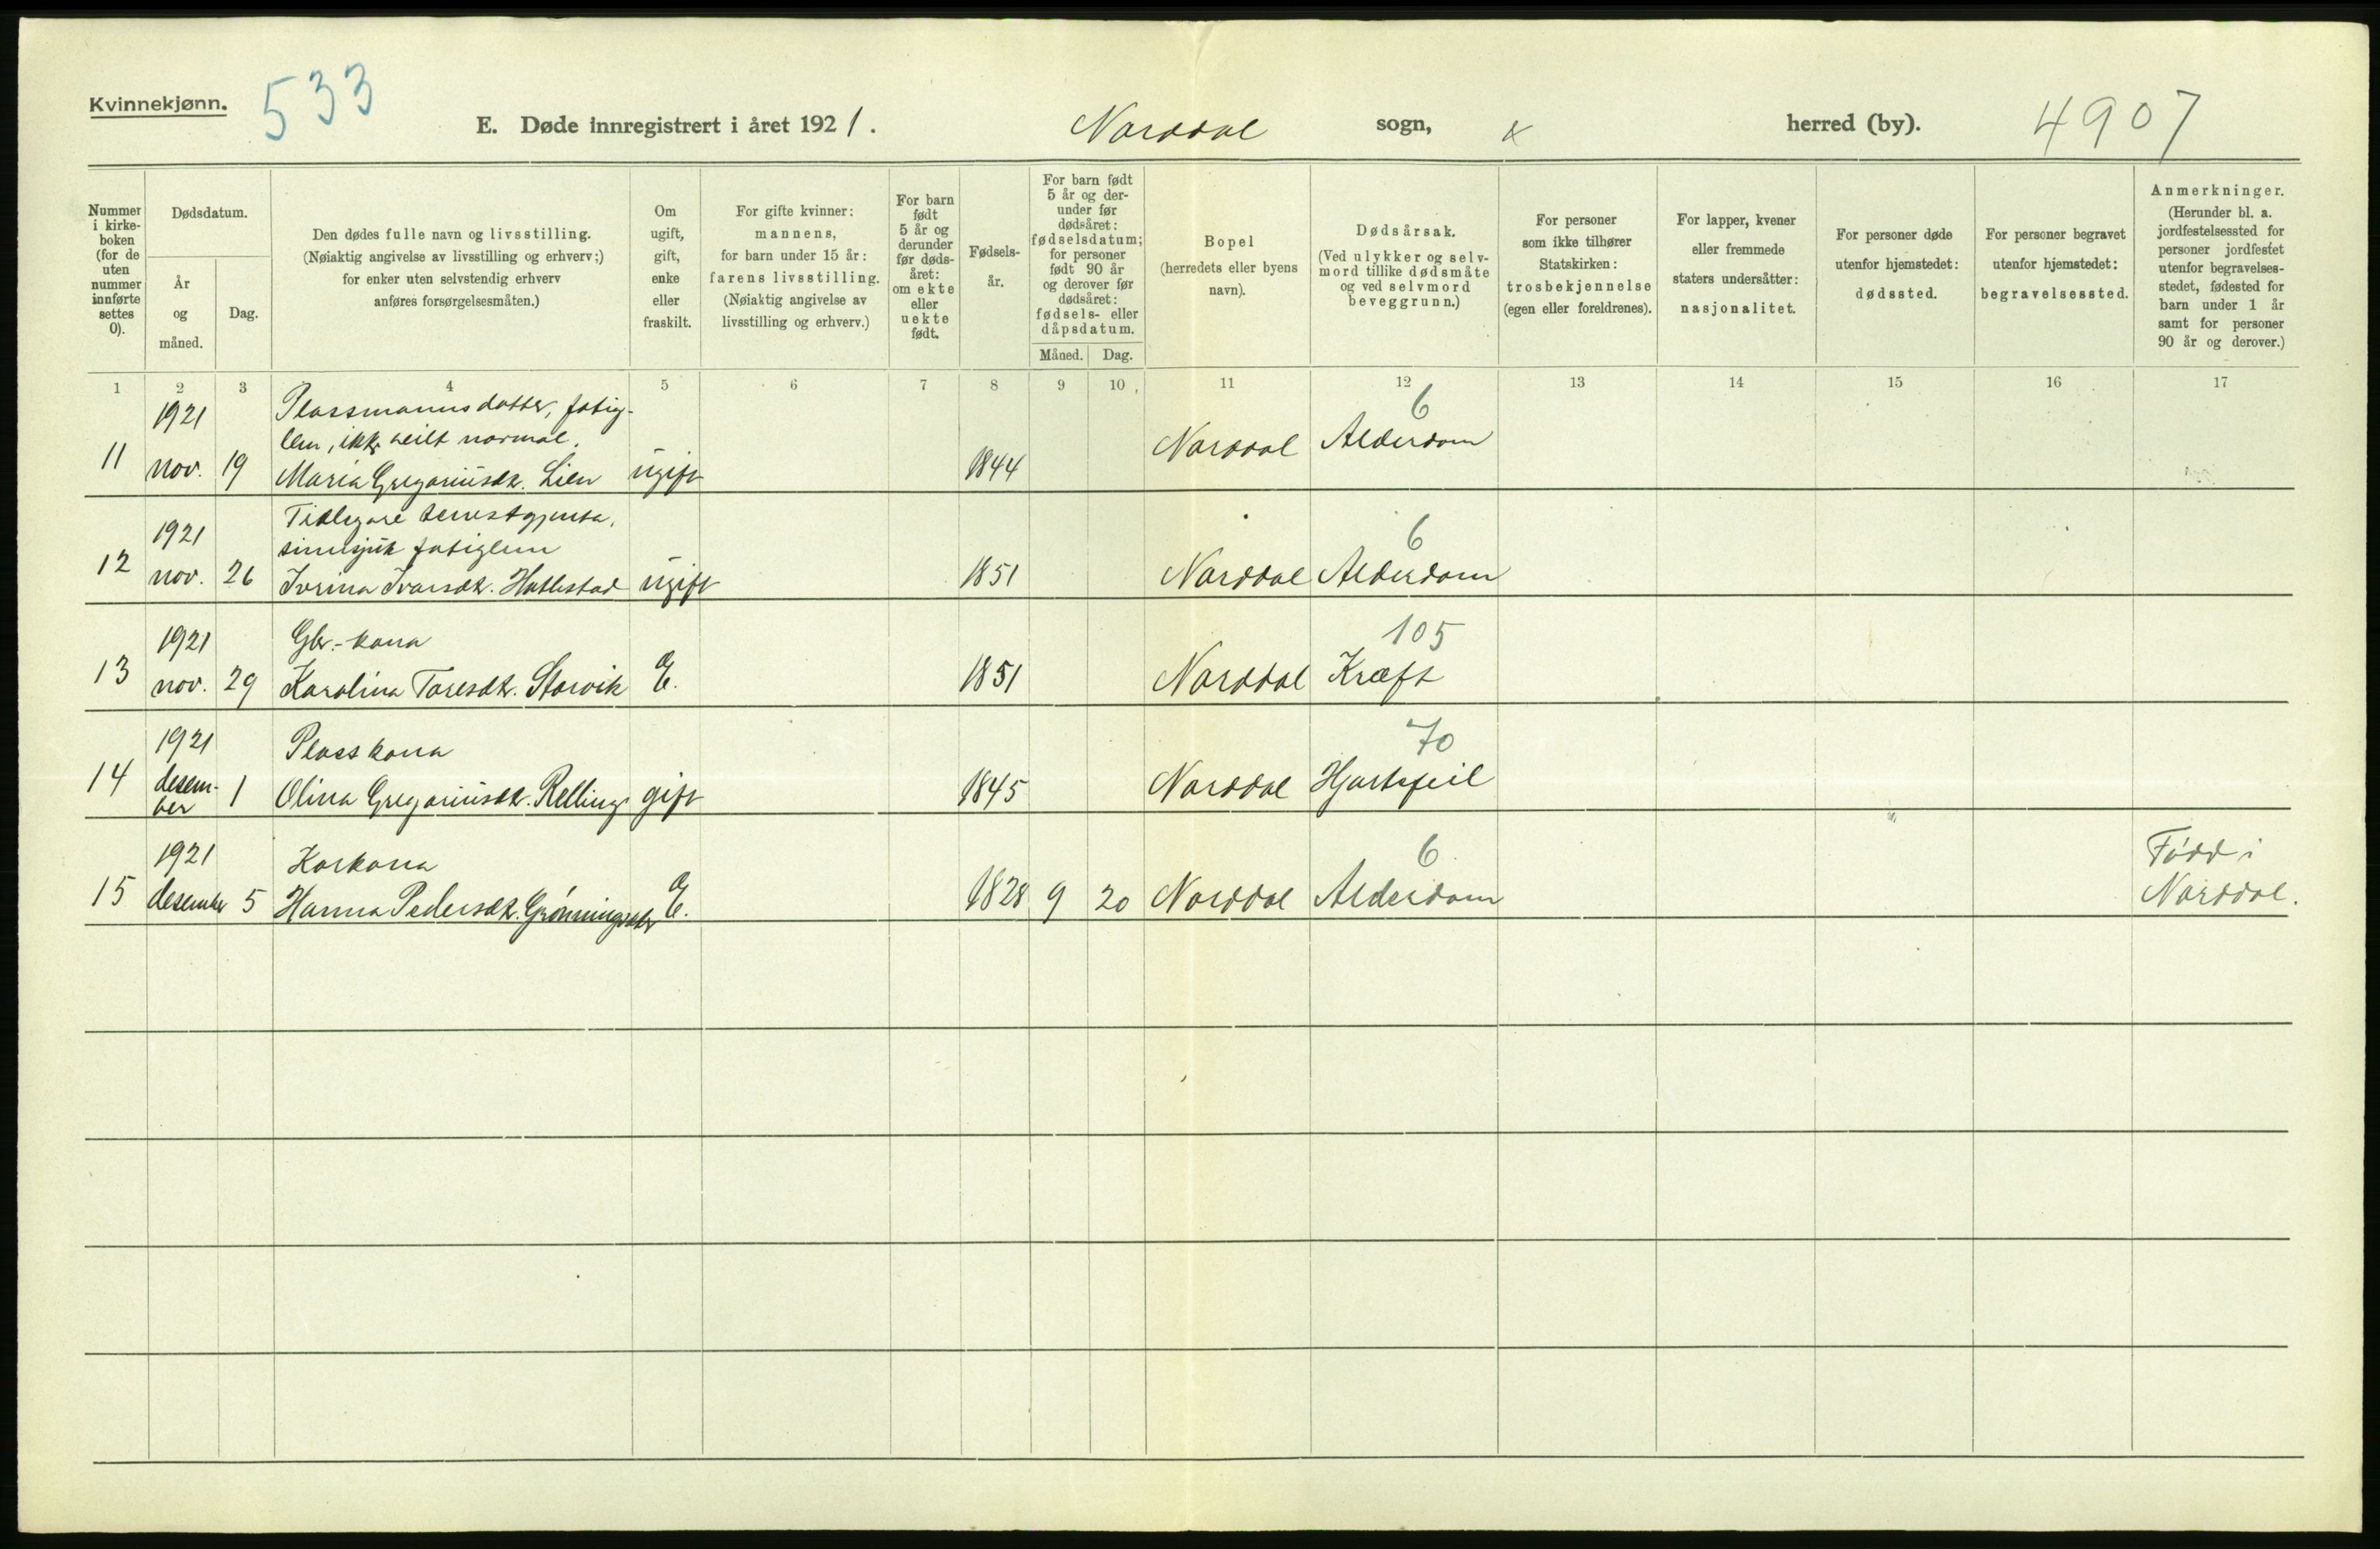 Kvinnekjønn.
533
E. Døde innregistrert i året 1921.
Norddal sogn, x herred (by).
4907
Nummer i kirke-boken (for de uten nummer innførte settes 0).
Dødsdatum.
År og måned.
Dag.
Den dødes fulle navn og livsstilling.
(Nøiaktig angivelse av livsstilling og erhverv;)
for enker uten selvstendig erhverv
anføres forsørgelsesmåten.)
Om ugift, gift, enke eller fraskilt.
For gifte kvinner:
mannens,
for barn under 15 år:
farens livsstilling.
(Nøiaktig angivelse av
livsstilling og erhverv.)
For barn født 5 år og derunder før døds-året: om ekte eller uekte født.
Fødsels-år.
For barn født 5 år og der-under før dødsåret: fødselsdatum; for personer født 90 år og derover før dødsåret: fødsels- eller dåpsdatum.
Måned. Dag.
Bopel
(herredets eller byens
navn).
Dødsårsak.
(Ved ulykker og selv-
mord tillike dødsmåte
og ved selvmord
beveggrunn.)
For personer
som ikke tilhører
Statskirken:
trosbekjennelse
(egen eller foreldrenes).
For lapper, kvener
eller fremmede
staters undersåtter:
nasjonalitet.
For personer døde
utenfor hjemstedet:
dødssted.
For personer begravet
utenfor hjemstedet:
begravelsessted.
Anmerkninger.
(Herunder bl. a.
jordfestelsessted for
personer jordfestet
utenfor begravelses-
stedet, fødested for
barn under 1 år
samt for personer
90 år og derover.)
1 2 3 4 5 6 7 8 9 10 11 12 13 14 15 16 17
1921 Plassmannsdotter, fatig- 6
lem, ikkje heilt normal.
11 nov. 19 Maria Gregoriusdt. Lien ugift 1844 Norddal Alderdom
1921 Tidlegare tenestgjenta, 6
sinnsjuk fatiglem
12 nov. 26 Ivrina Ivarsdt. Hatlestad ugift 1851 Norddal Alderdom
1921 Gbr.-kona 105
13 nov. 29 Karolina Toresdt. Storvik E. 1851 Norddal Kræft
1921 Plasskona 70
14 desem-
ber 1 Olina Gregoriusdt. Relling gift 1845 Norddal Hjartefeil
1921 Karkona 6 Fødd i
15 desember 5 Hanna Pedersdt. Grønningsæter E. 1828 9 20 Norddal Alderdom Norddal.